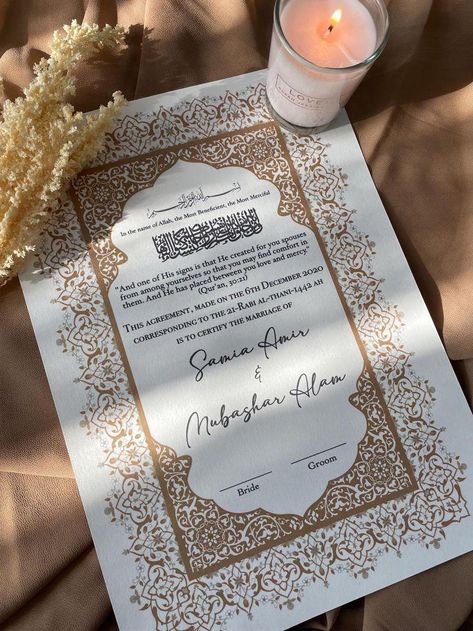 LOVE
بسم الله الرحمن الرحيم
In the name of Allah, the Most Beneficient, the Most Merciful
"And one of His signs is that He created for you spouses
from among yourselves so that you may find comfort in
them. And He has placed between you love and mercy."
(Qu'an, 30:21)
THIS AGREEMENT, MADE ON THE 6TH DECEMBER 2020
CORRESPONDING TO THE 21-RABI AL-THANI-1442 AH
IS TO CERTIFY THE MARRIAGE OF
Samia Amir
&
Mubashar Alam
Bride
Groom